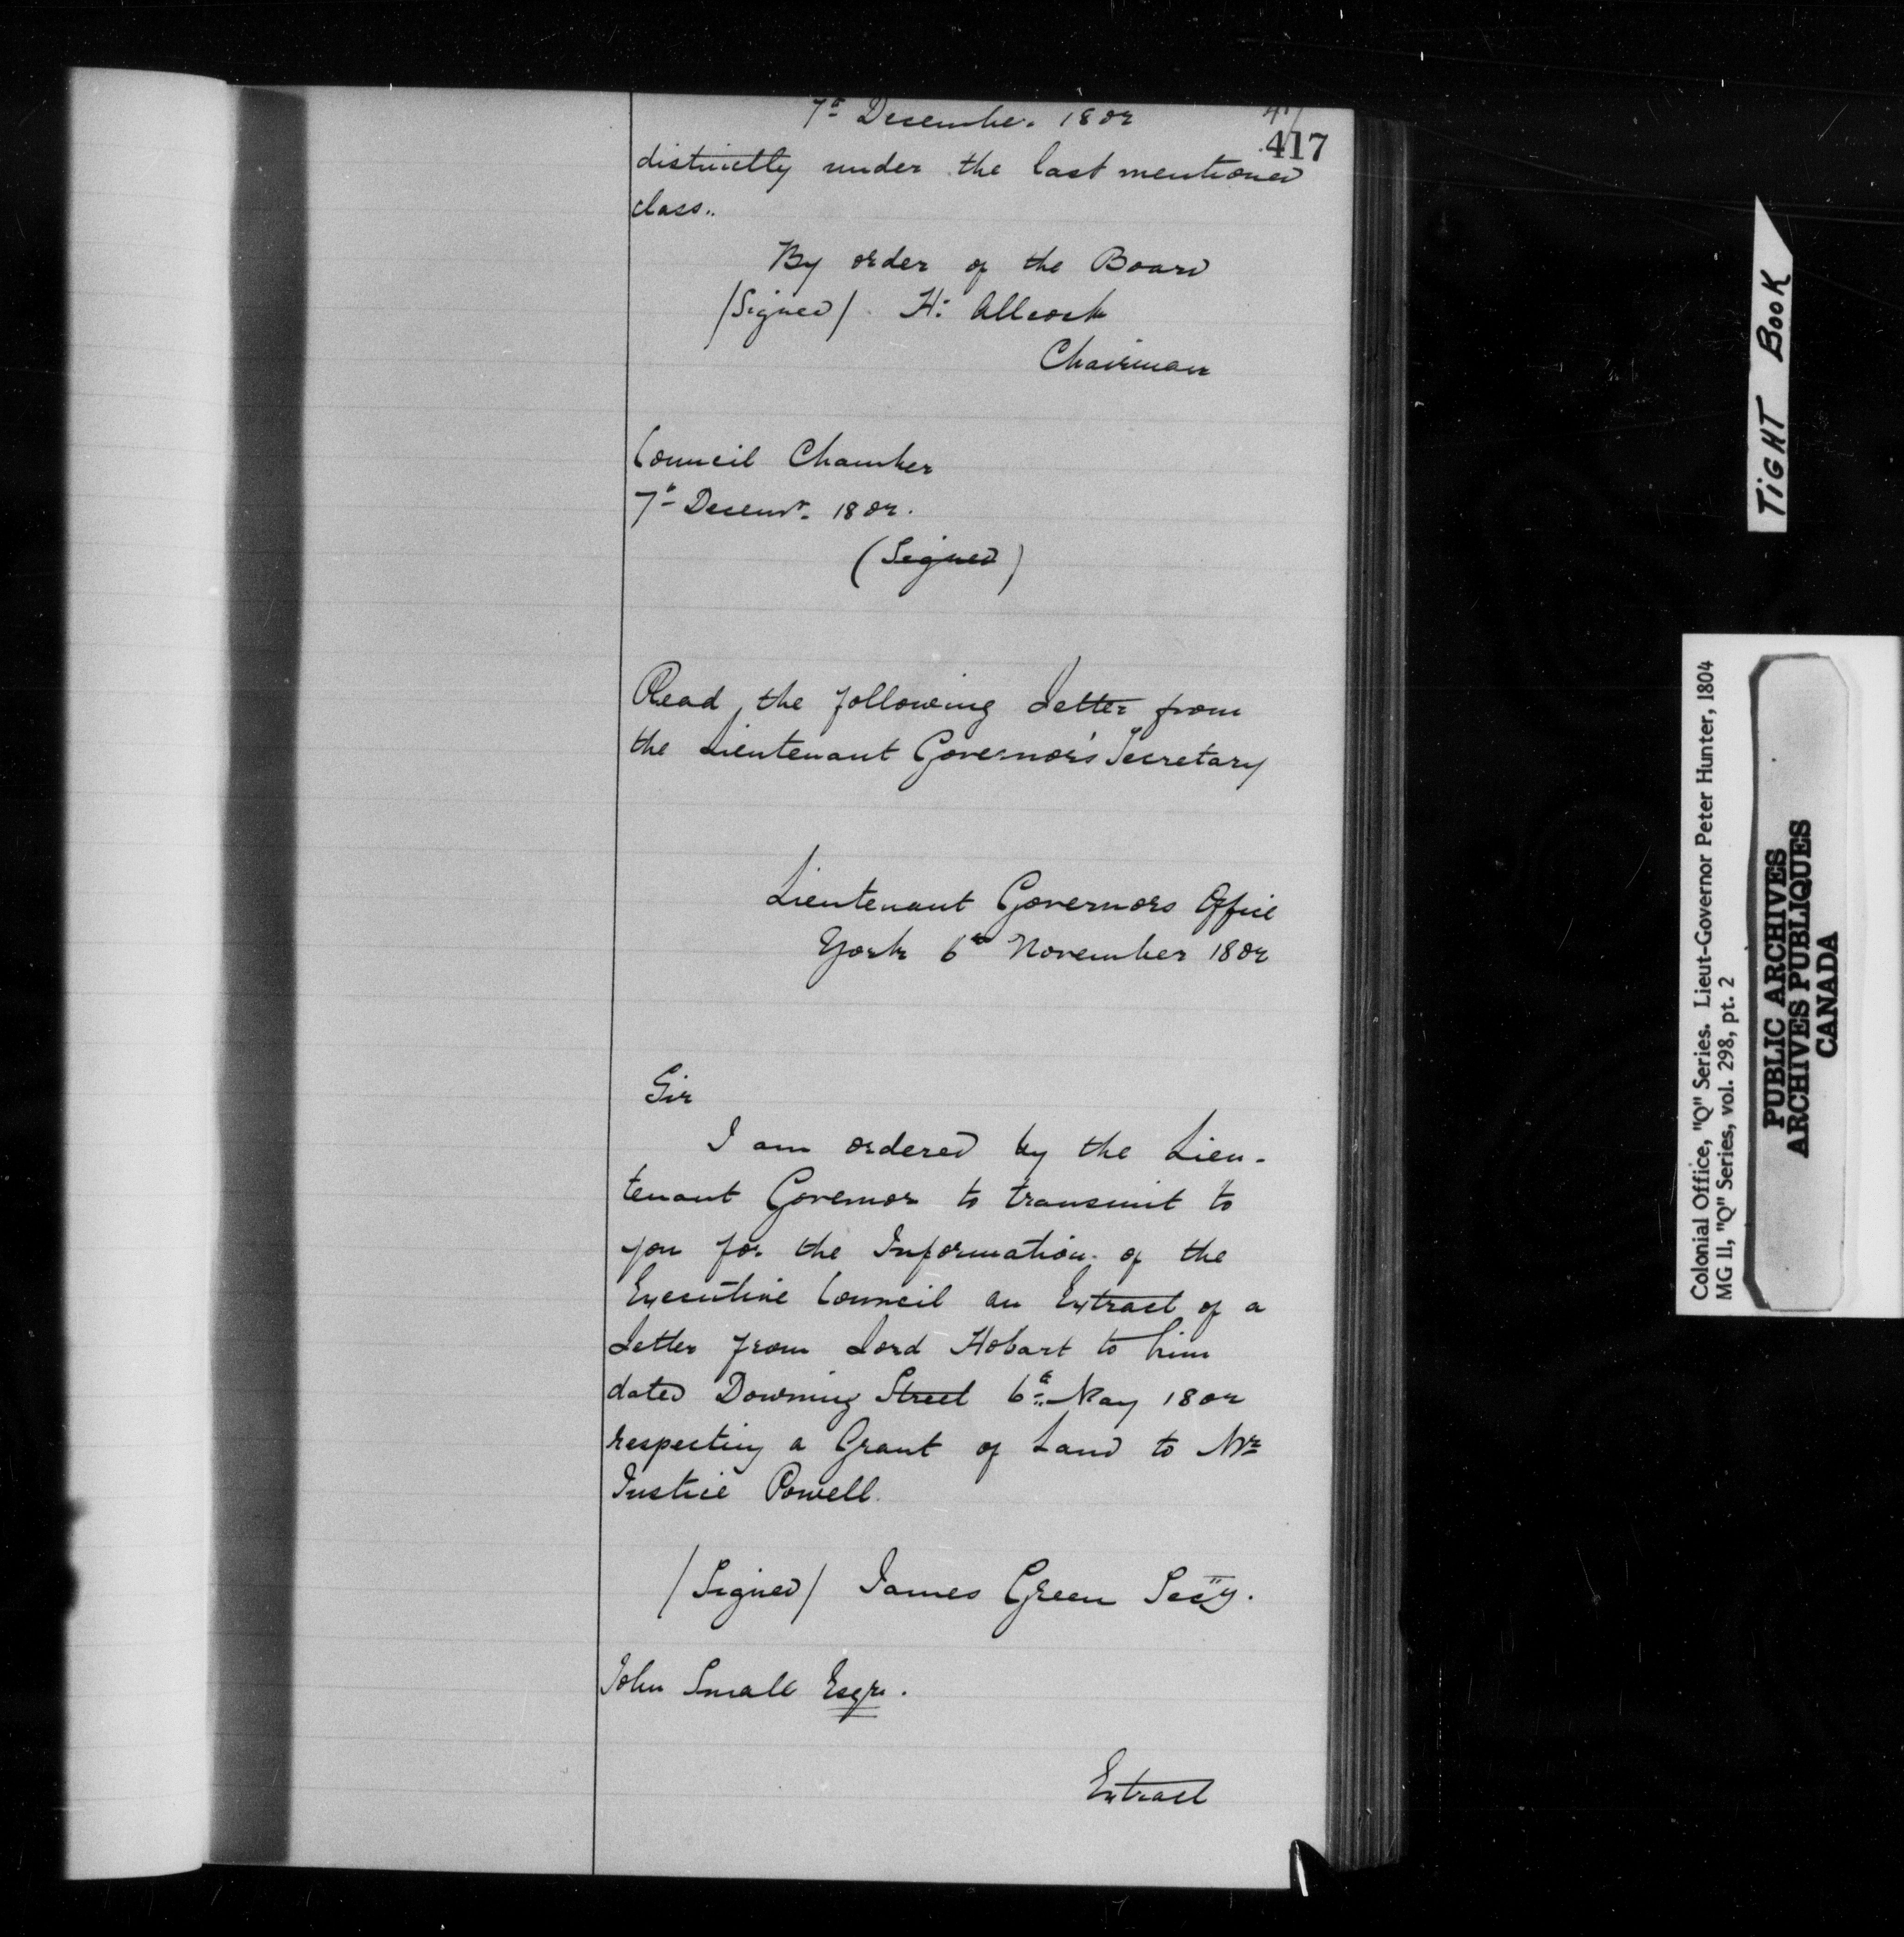 7th December 1802
417
distinctly under the last mentioned
class..
By order of the Board
/Signed/. H: Allcock
Chairman
Council Chamber
7th Decemr. 1802.
(Signed)
Read, the following Letter from
the Lieutenant Governor's Secretary
Lieutenant Governors Office
York 6th November 1802
Sir
I am ordered by the Lieu-
tenant Governor to transmit to
you for the Information of the
Executive Council an Extract of a
Letter from Lord Hobart to him
dated Downing Street 6th May 1802
respecting a Grant of Land to Mr
Justice Powell.
/Signed/ James Green Secy.
John Small Esqr.
Extract
TIGHT BOOK
Colonial Office, "Q" Series. Lieut-Governor Peter Hunter, 1804
MG 11, "Q" Series, vol. 298, pt. 2
PUBLIC ARCHIVES
ARCHIVES PUBLIQUES
CANADA